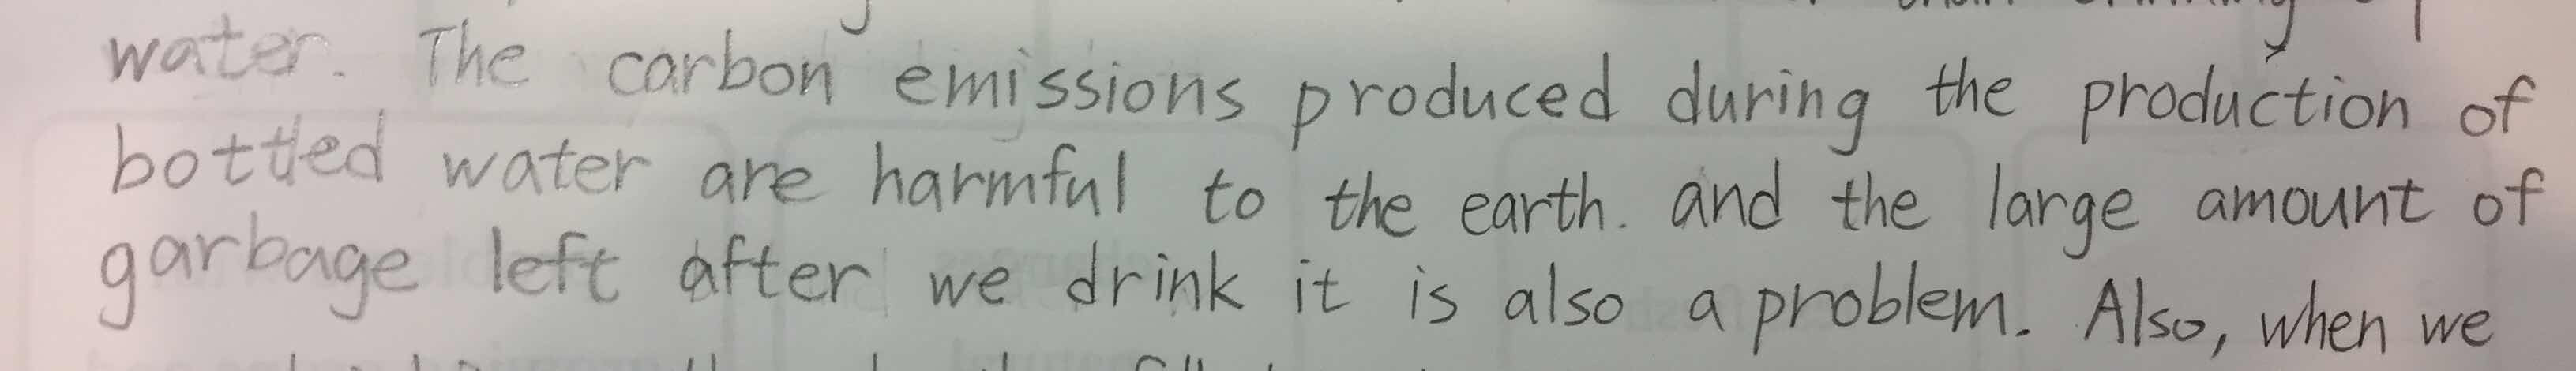 water. The carbon emissions produced during the production of
bottled water are harmful to the earth. and the large amount of
garbage left after we drink it is also a problem. Also, when we